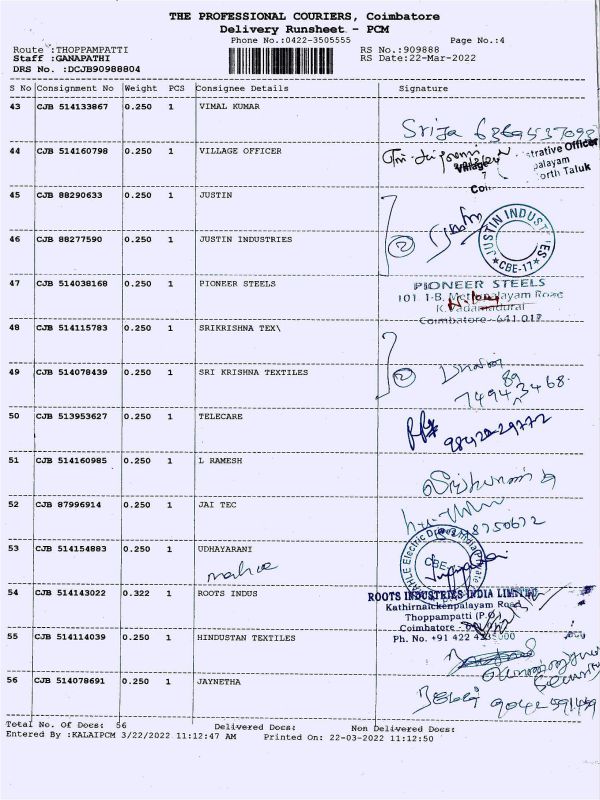 THE PROFESSIONAL COURIERS, Coimbatore
Delivery Runsheet - PCM
Phone No.:0422-3505555 Page No.:4
Route :THOPPAMPATTI RS No.:909888
Staff :GANAPATHI RS Date:22-Mar-2022
DRS No. :DCJB90988804
S No Consignment No Weight PCS Consignee Details Signature
43 CJB 514133867 0.250 1 VIMAL KUMAR
Srija
44 CJB 514160798 0.250 1 VILLAGE OFFICER
strative Officer
Village palayam
orth Taluk
Coi
45 CJB 88290633 0.250 1 JUSTIN
46 CJB 88277590 0.250 1 JUSTIN INDUSTRIES
2
JUSTIN INDUSTRIES
CBE-17
47 CJB 514038168 0.250 1 PIONEER STEELS
PIONEER STEELS
101 1-B, Mettupalayam Road
K. Vadamadurai
Coimbatore - 641 017
48 CJB 514115783 0.250 1 SRIKRISHNA TEX\
49 CJB 514078439 0.250 1 SRI KRISHNA TEXTILES
2
50 CJB 513953627 0.250 1 TELECARE
98420-29772
51 CJB 514160985 0.250 1 L RAMESH
52 CJB 87996914 0.250 1 JAI TEC
53 CJB 514154883 0.250 1 UDHAYARANI
CBE
54 CJB 514143022 0.322 1 ROOTS INDUS
ROOTS INDUSTRIES INDIA LIMITED
Kathirnaickenpalayam Road
Thoppampatti (P.O.)
Coimbatore -
Ph. No. +91 422 4335000
55 CJB 514114039 0.250 1 HINDUSTAN TEXTILES
Security
56 CJB 514078691 0.250 1 JAYNETHA
Total No. Of Docs: 56 Delivered Docs: Non Delivered Docs:
Entered By :KALAIPCM 3/22/2022 11:12:47 AM Printed On: 22-03-2022 11:12:50